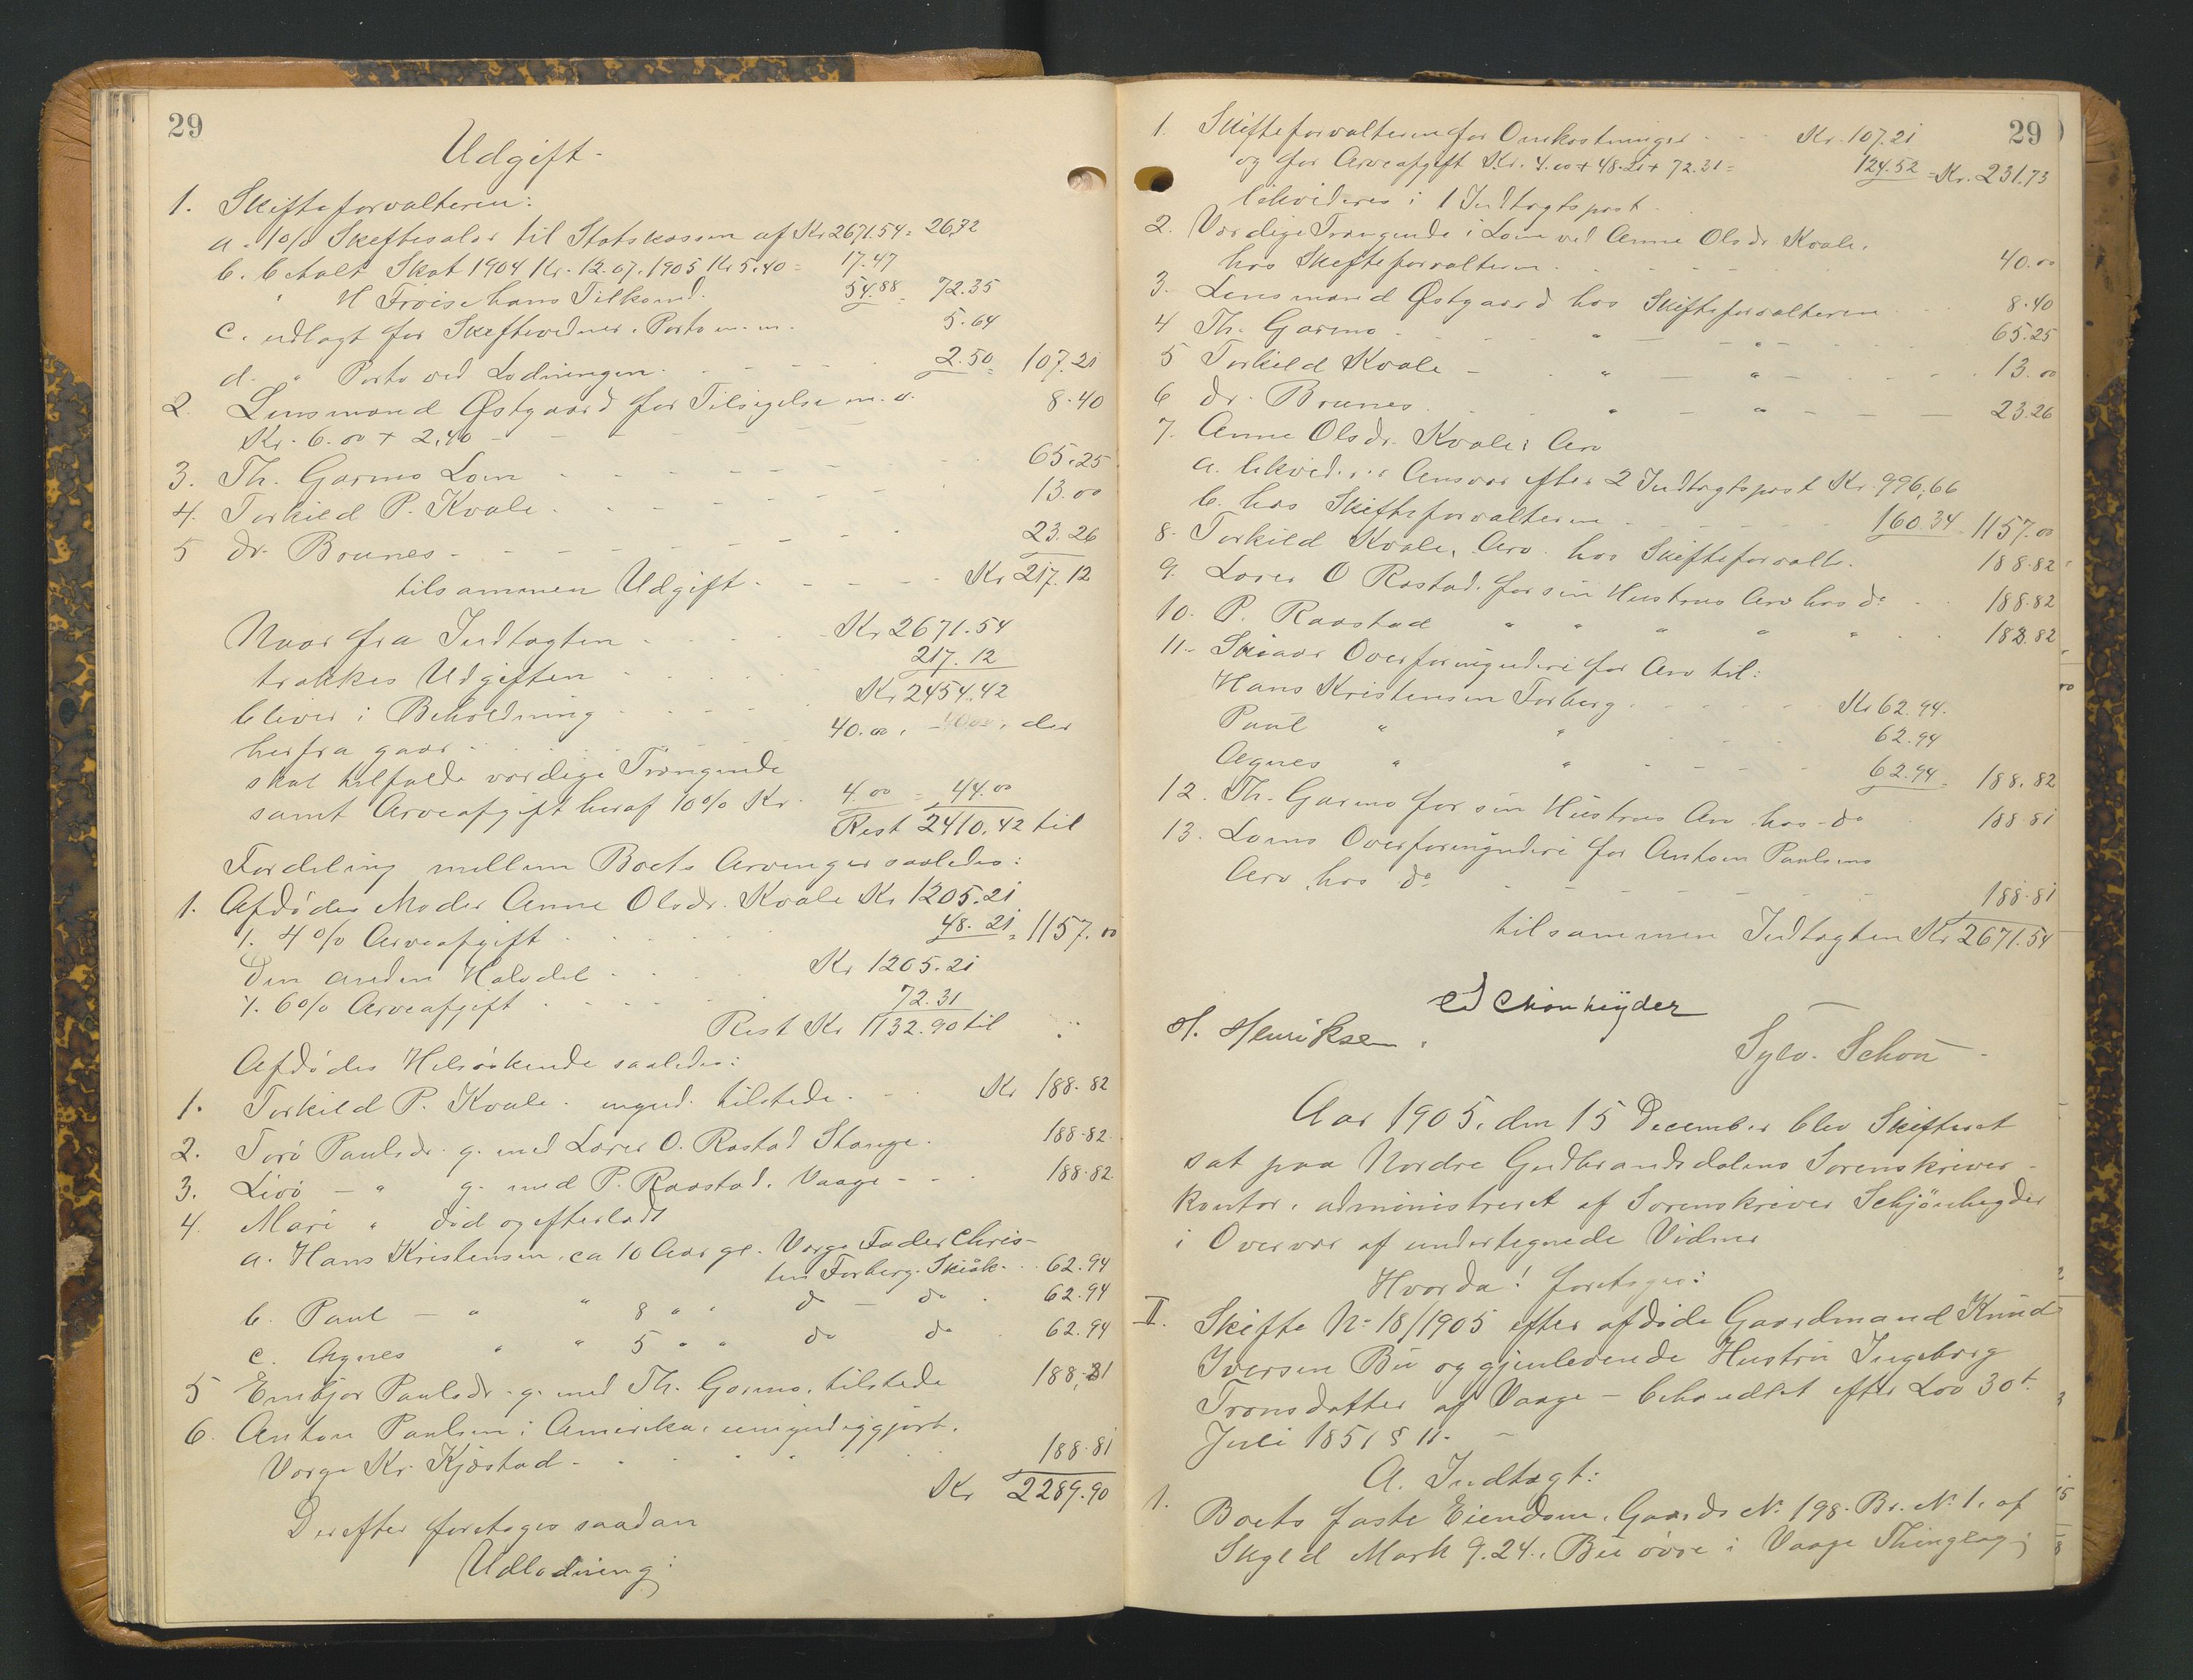 29
Udgift.
1. Skifteforvalteren:
a. 1% Skiftesalær til Statskassen af Kr 2671.54 = 26.72
b. betalt Skat 1904 Kr. 12.07, 1905 Kr 5.40 = 17.47
" H Froise hans Tilkomd. 54.88 = 72.35
c. udlagt for Skiftevidner, Porto m.m. 5.64
d. " Porto ved Lodningen 2.50 = 107.21
2. Lensmand Østgaard for Tilsigelse m.v.
Kr. 6.00 + 2,40 - - 8.40
3. Th. Garmo Lom 65.25
4. Torkild P. Kvale 13.00
5 dr. Brunes 23.26
tilsammen Udgift Kr 217.12
Naar fra Indtægten Kr 2671.54
trækkes Udgiften 217.12
bliver i Beholdning Kr 2454.42
herfra gaar 40.00, der
skal tilfalde værdige Trængende
samt Arveafgift heraf 10% Kr. 4.00 = 44.00
Rest 2410.42 til
Fordeling mellem Boets Arvinger saaledes:
1. Afdødes Moder Anne Olsdr. Kvale Kr 1205.21
÷ 4% Arveafgift 48.21 = 1157.00
Den anden Halvdel Kr 1205.21
÷ 6% Arveafgift 72.31
Rest Kr 1132.90 til
Afdødes Helsøskende saaledes:
1. Torkild P. Kvale. mynd. tilstede Kr 188.82
2. Torø Paulsdr. g. med Lærer O. Rastad Stange. 188.82
3. Livø - " g. med P. Raastad, Vaage - - 188.82
4. Mari " død og efterladt
a. Hans Kristensen, ca 10 Aar gl. Værge Fader Chris-
ten Forberg. Skiåk. 62.94
b. Paul - " " 8 " " do - do 62.94
c. Agnes " " 5 " " do do 62.94
5 Embjør Paulsdr. g. med Th. Garmo, tilstede 188.81
6. Anton Paulsen i Amerika, umyndiggjort.
Værge Kr. Kjæstad 188.81
Kr 2289.90
Derefter foretoges saadan
Udlodning:
29
1. Skifteforvalteren for Omkostninger Kr. 107.21
og for Arveafgift Kr. 4.00 + 48.21 + 72.31 = 124.52 = Kr. 231.73
likvideres i 1 Indtægtspost.
2. Værdige Trængende i Lom ved Anne Olsdr. Kvale,
hos Skifteforvalteren 40.00
3. Lensmand Østgaard hos Skifteforvalteren 8.40
4 Th. Garmo - " - " - 65.25
5 Torkild Kvale - " - " - 13.00
6 dr. Brunes " - " - 23.26
7. Anne Olsdr. Kvale: Arv
a. likvid. i Ansvar efter 2 Indtægtspost Kr. 996,66
b. hos Skifteforvalteren 160.34 1157.00
8. Torkild Kvale, Arv. hos Skifteforvalt. 188.82
9. Lærer O Rastad, for sin Hustrus Arv hos do 188.82
10. P. Raastad " " " " " 188.82
11. Skiaar Overformynderi for Arv til:
Hans Kristensen Forberg Kr 62.94
Paul " " 62.94
Agnes " " 62.94 = 188.82
12. Th. Garmo for sin Hustrus Arv hos do 188.81
13. Loms Overformynderi for Anton Paulsens
Arv hos do 188.81
tilsammen Indtægten Kr 2671.54
E Schønheyder
H. Henriksen.
Sylv. Schou
Aar 1905, den 15 December blev Skifteret
sat paa Nordre Gudbrandsdalens Sorenskriver-
kontor, administreret af Sorenskriver Schjønheyder
i Overvær af undertegnede Vidner
Hvorda! foretoges:
II. Skifte No 18/1905 efter afdøde Gaardmand Knud
Iversen Bu og gjenlevende Hustru Ingeborg
Tronsdatter af Vaage - behandlet efter Lov 30t
Juli 1851 § 11. -
A. Indtægt:
1. Boets faste Eiendom, Gaards No 198. Br. No 1, af
Skyld Mark 9.24, Bu øvre i Vaage Thinglag;